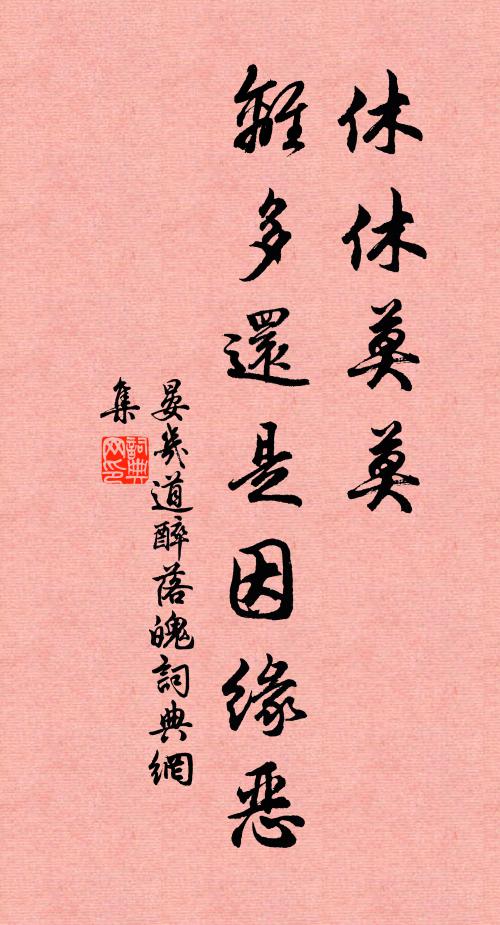 休休莫莫
離多還是因緣惡
晏幾道醉落魄詞典網
集
詞典
网印